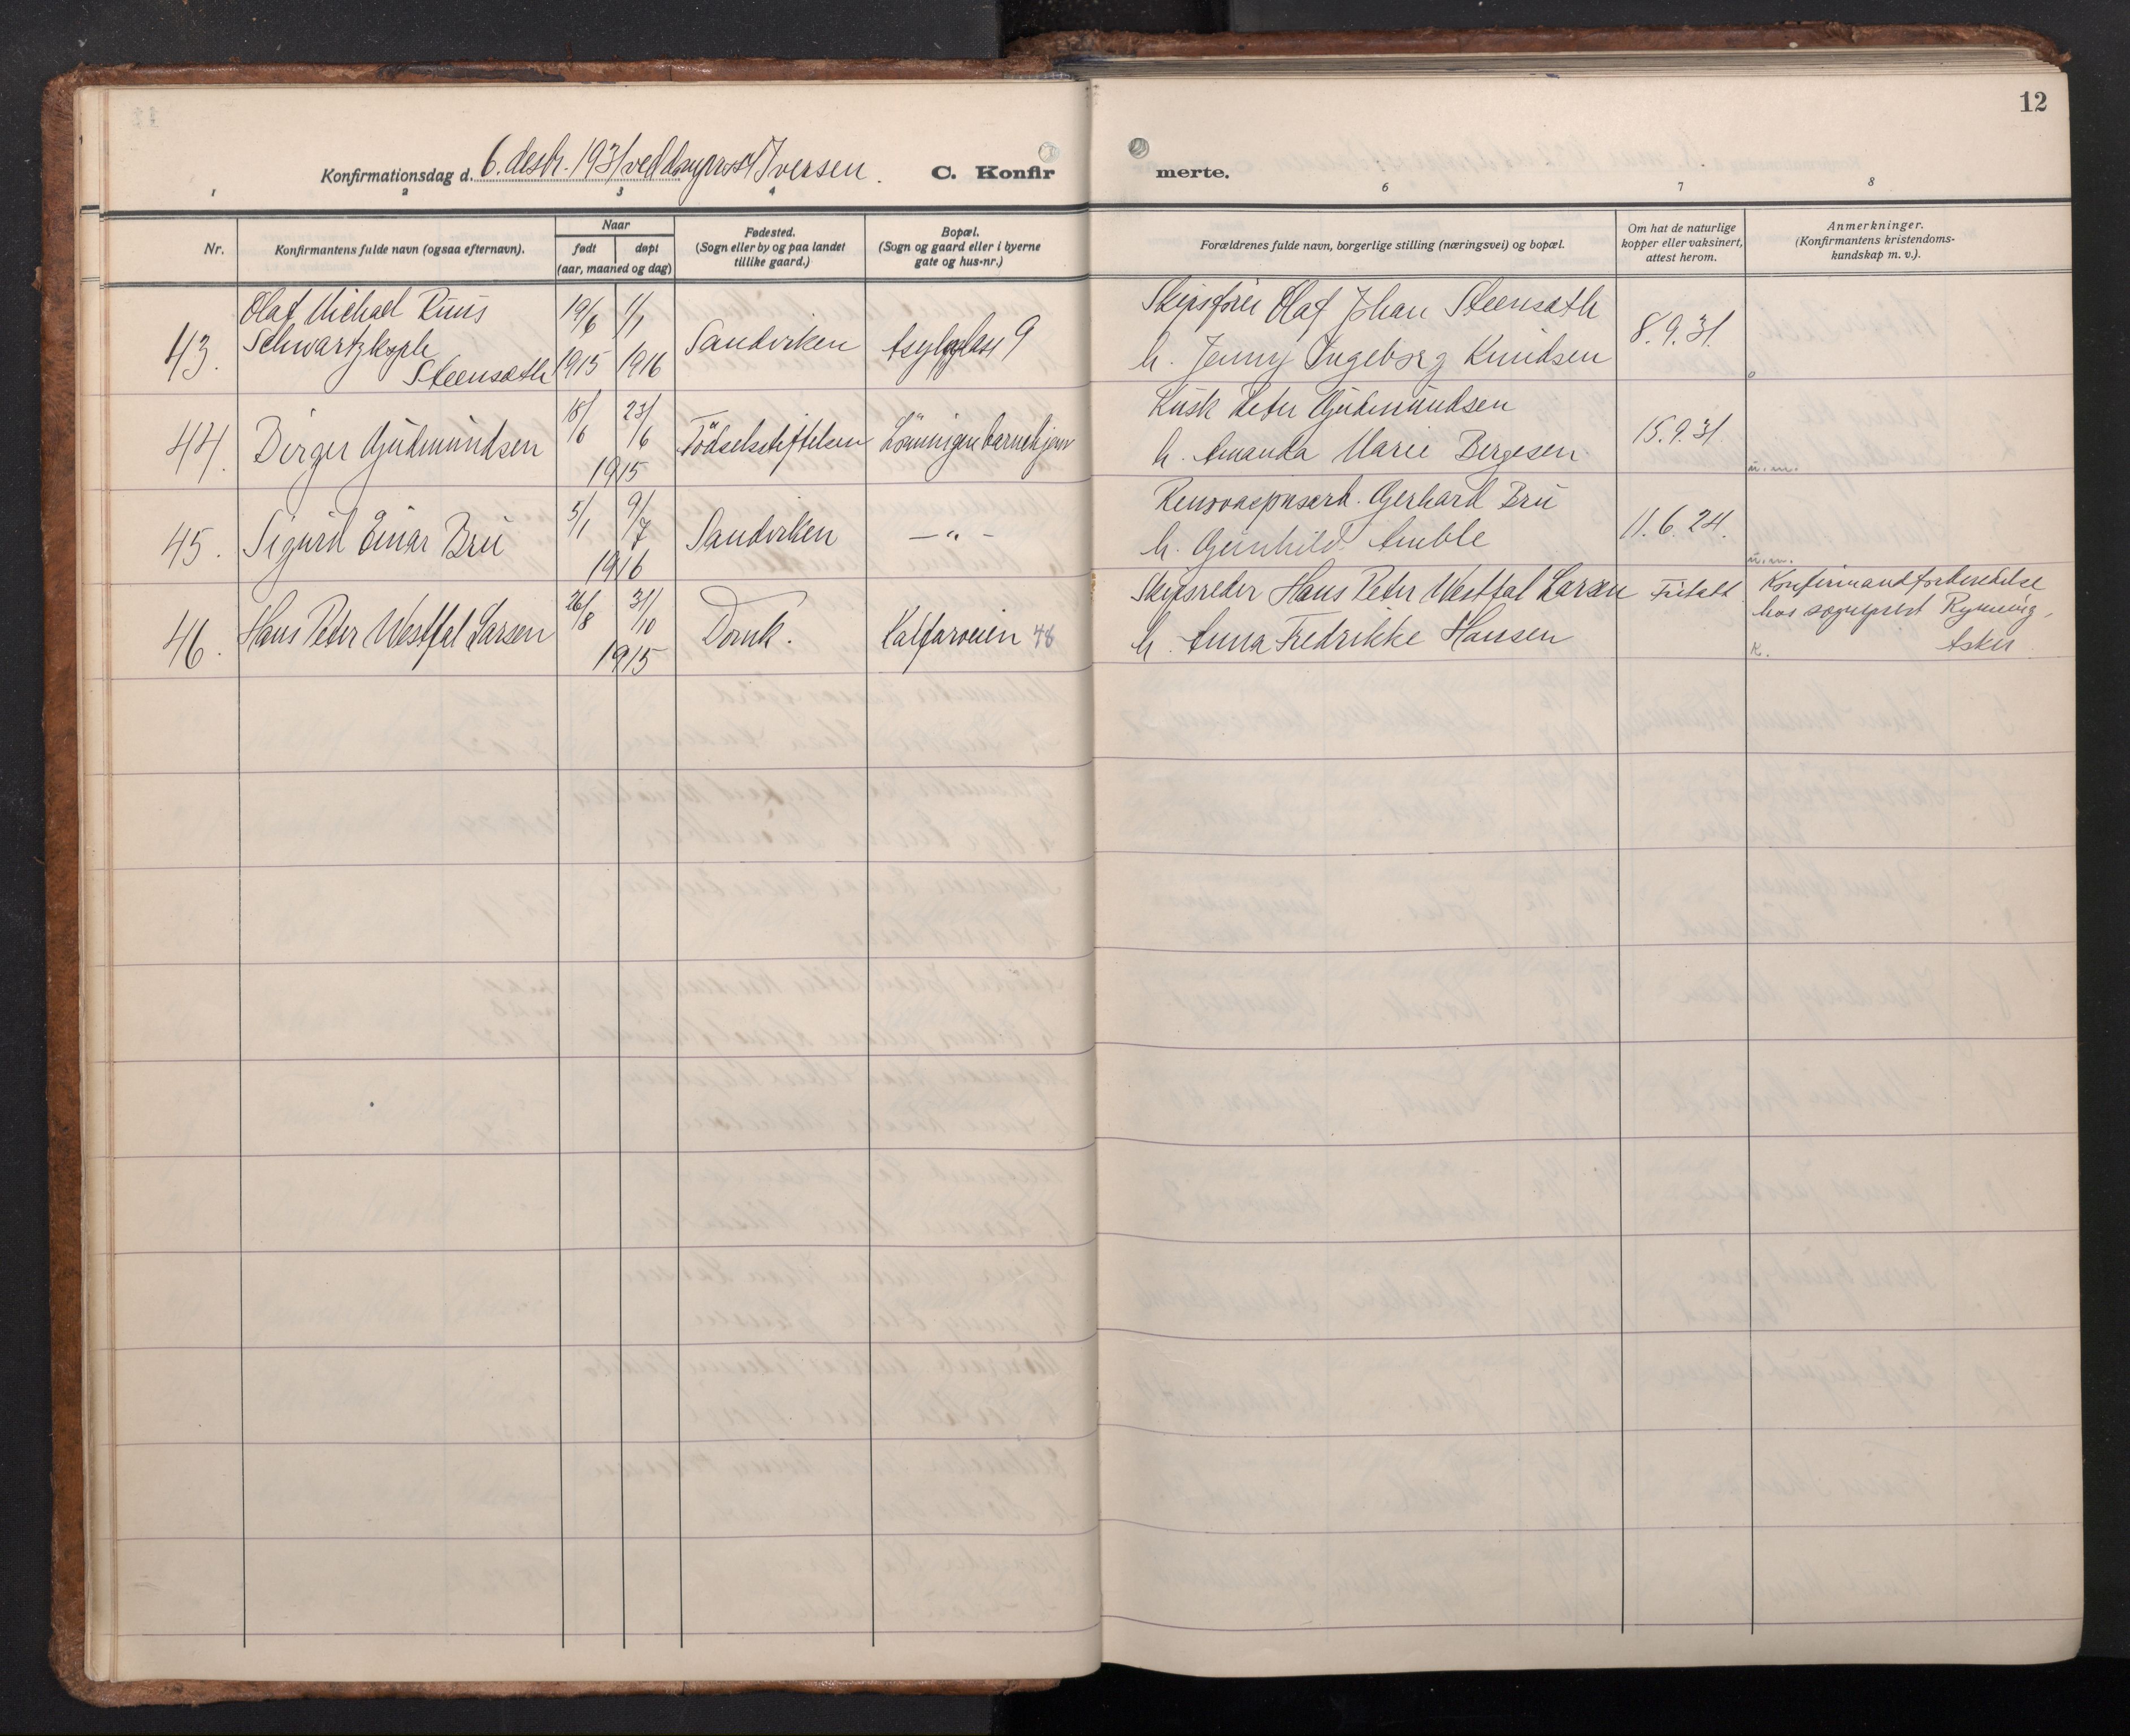 12
Konfirmationsdag d. 6. desbr. 1931 ved Iversen. C. Konfirmerte.
1 2 3 4 6 7 8
Nr.
Konfirmantens fulde navn (ogsaa efternavn).
Naar
født
døpt
(aar, maaned og dag)
Fødested.
(Sogn eller by og paa landet
tillike gaard.)
Bopæl.
(Sogn og gaard eller i byerne
gate og hus-nr.)
Forældrenes fulde navn, borgerlige stilling (næringsvei) og bopæl.
Om hat de naturlige
kopper eller vaksinert,
attest herom.
Anmerkninger.
(Konfirmantens kristendoms-
kundskap m. v.).
43.
Olaf Michael Ruus
Schwartzkoph
Steensæth
19/6 1915
1/1 1916
Sandviken
Asylplass 9
Skipsfører Olaf Johan Steensæth
h. Jenny Ingeborg Knudsen
8.9.31.
44.
Birger Gudmundsen
18/6 23/6
1915
Fødselsstiftelsen
Lønningen barnehjem
Kusk Peter Gudmundsen
h. Amanda Marie Bergesen
15.9.31
u.m.
45.
Sigurd Einar Bru
5/1 9/7
1916
Sandviken
— " –
Gerhard Bru
h. Gunhild Amble
11.6.24.
u.m.
46.
Hans Peter Westfal Larsen
26/8 31/10
1915
Domk.
Kalfarveien 48
Skipsreder Hans Peter Westfal Larsen
h. Anna Fredrikke Hansen
Fritatt
Konfirmandforberedelse
hos sogneprest Rynning,
Asker
K.